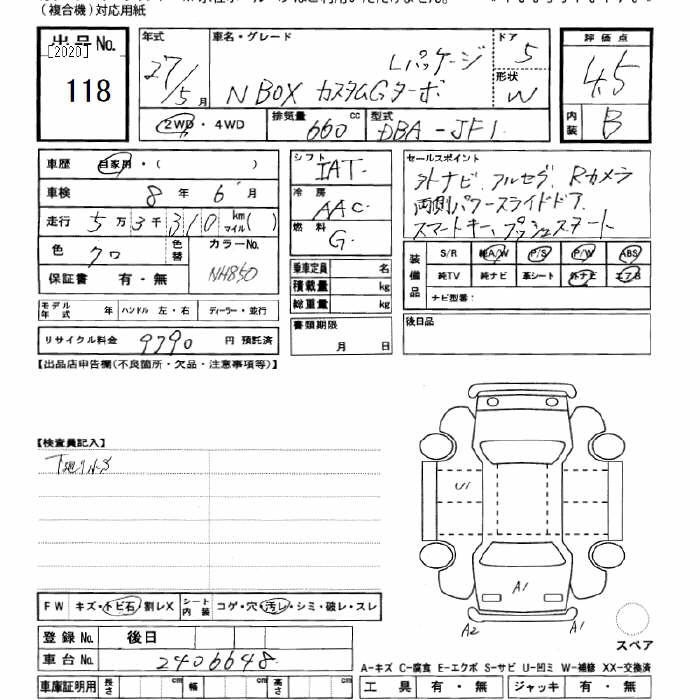 (複合機)対応用紙
出品No.
[2020]
118
年式
27/5 月
車名・グレード
Lパッケージ
N BOX カスタムGターボ
ドア
5
形状
W
評価点
4.5
内装
B
2WD・4WD
排気量
660 cc
型式
DBA-JF1
車歴 自家用・( )
車検 8 年 6 月
走行 5 万 3 千 310 km マイル( )
色 クロ
色替
カラーNo.
NH850
保証書 有・無
モデル年式 年 ハンドル 左・右 ディーラー・並行
リサイクル料金 9790 円 預託済
シフト
IAT
冷房
AAC
燃料
G
乗車定員 名
積載量 kg
総重量 kg
書類期限
月 日
セールスポイント
外ナビ、アルセグ、Rカメラ
両側パワースライドドア、
スマートキー、プッシュスタート
装備品
S/R 純A/W P/S P/W ABS
純TV 純ナビ 革シート 外ナビ エアB
ナビ型番:
後日品
【出品店申告欄(不良箇所・欠品・注意事項等)】
【検査員記入】
U1
A1
A2
A1
スペア
FW キズ・トビ石・割レX シート内装 コゲ・穴・汚レ・シミ・破レ・スレ
登録No. 後日
車台No. 2406648
車庫証明用 長さ cm 幅 cm 高さ cm
A-キズ C-腐食 E-エクボ S-サビ U-凹ミ W-補修 XX-交換済
工具 有・無 ジャッキ 有・無